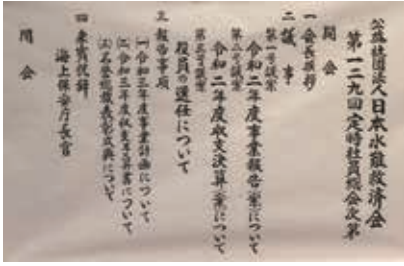 公益社団法人日本水難救済会
第一二九回定時社員総会次第
開会
一 会長挨拶
二 議事
第一号議案
令和二年度事業報告(案)について
第二号議案
令和二年度収支決算(案)について
第三号議案
役員の選任について
三 報告事項
(一)令和三年度事業計画について
(二)令和三年度収支予算書について
(三)名誉総裁表彰式典について
四 来賓祝辞
海上保安庁長官
閉会